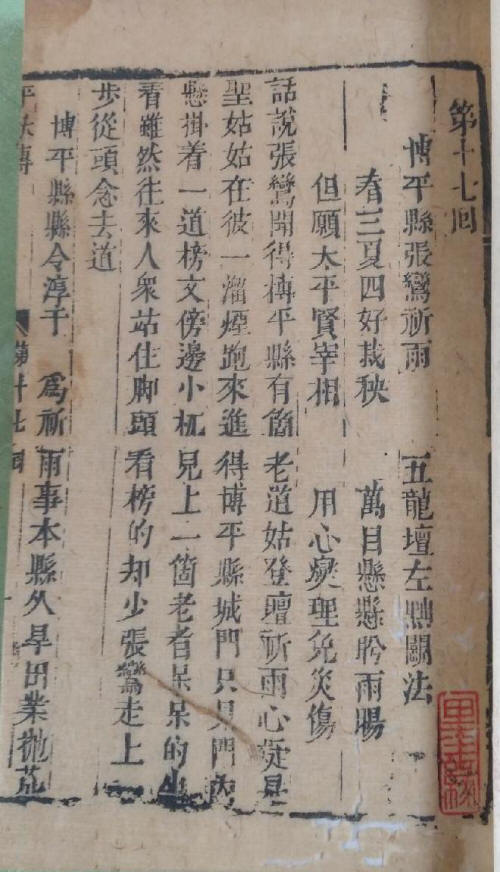 第十七回
博平縣張鸞祈雨 五龍壇左黜鬭法
春三夏四好栽秧 萬目懸懸盻雨暘
但願太平賢宰相 用心燮理免災傷
話說張鸞聞得博平縣有箇老道姑登壇祈雨心疑是
聖姑姑在彼一溜煙跑來進得博平縣城門只見門內
懸掛着一道榜文傍邊小杌兒上一箇老者呆呆的坐
看雖然往來人衆站住脚頭看榜的却少張鸞走上一
步從頭念去道
博平縣縣令淳于 爲祈雨事本縣久旱田業抛荒
平妖傳 第十七回